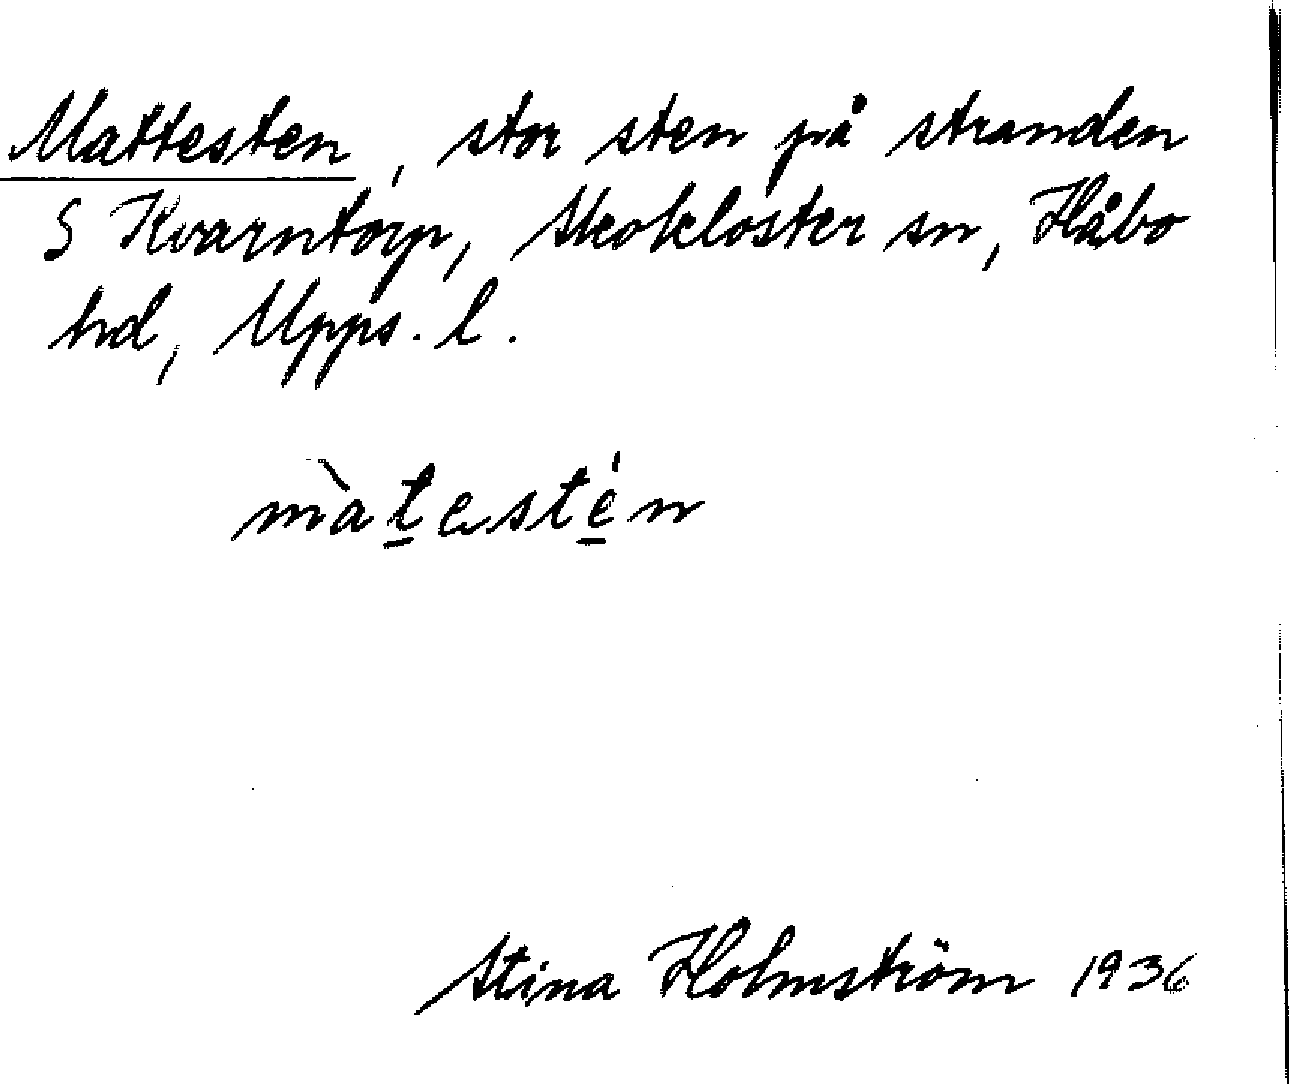 Mattesten, stor sten på stranden
S Kvarntorp, Skokloster sn, Håbo
hd, Upps. l.
m̀at̲esté̲n
Stina Holmström 1936